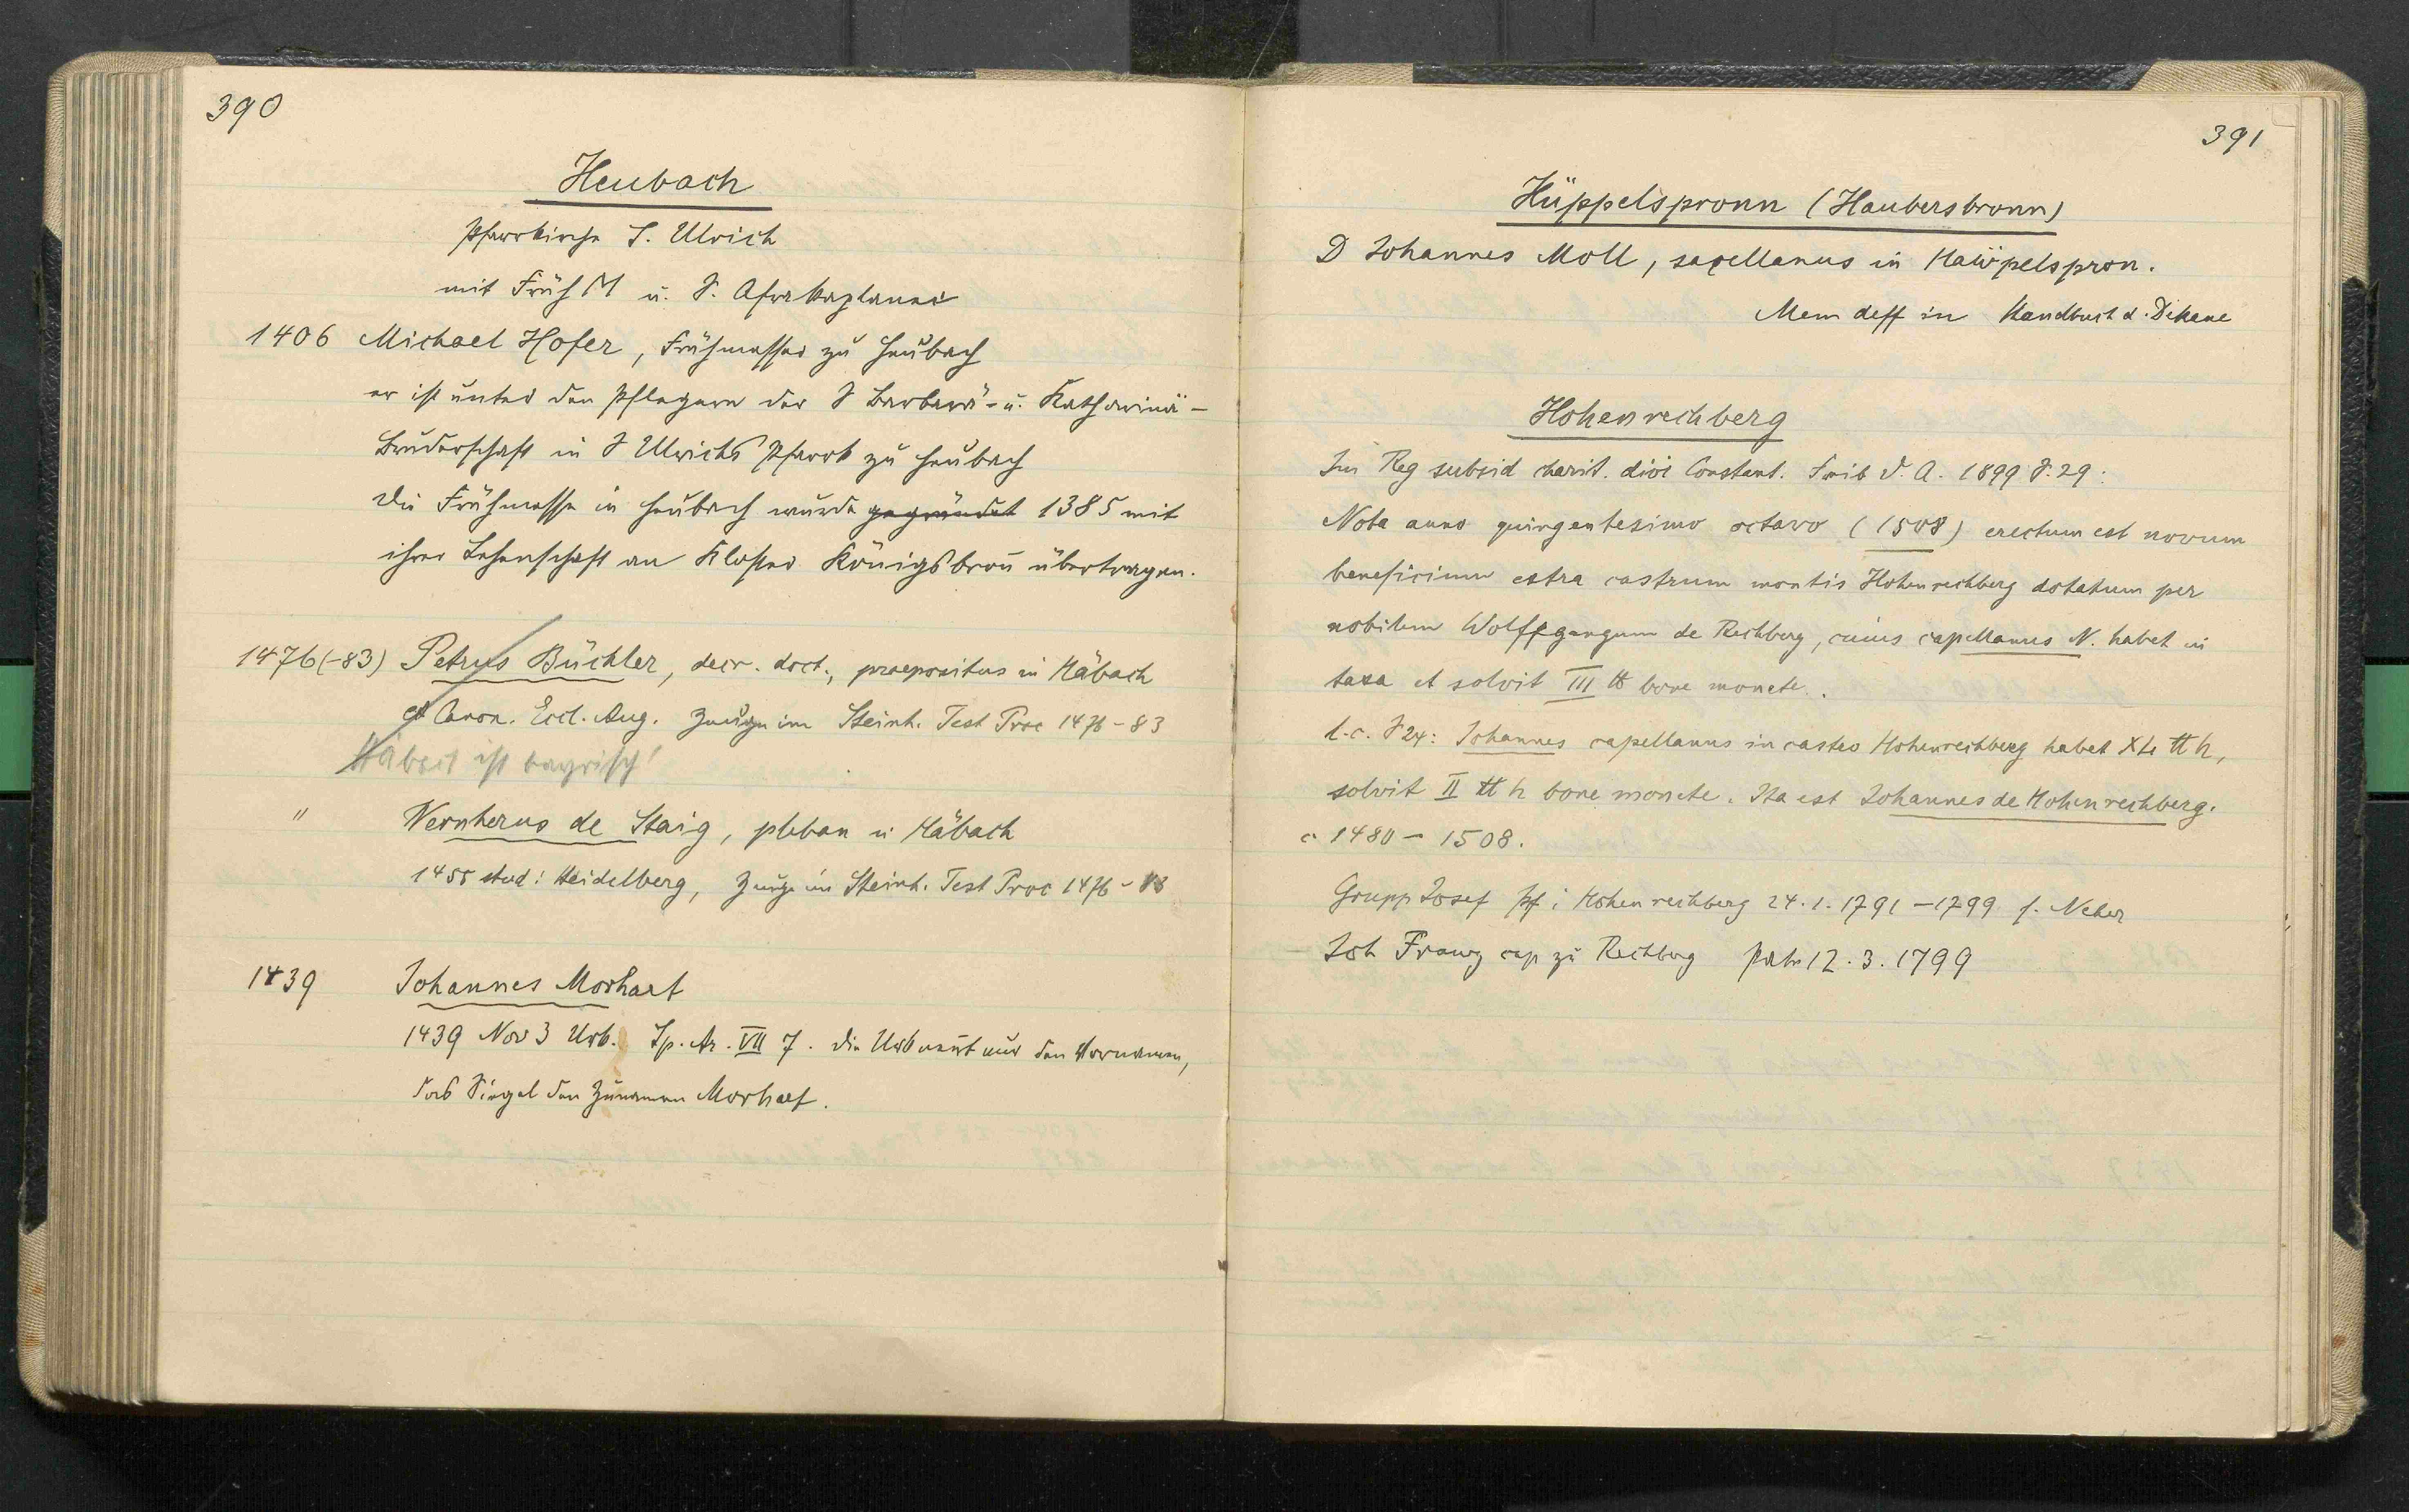 390
Heubach
Pfarrkirche S. Ulrich
mit Früh M u. S. Afrakaplanei
1406 Michael Hofer, Frühmesser zu Heubach
er ist unter den Pflegern der S Barbara- u. Katharina-
Bruderschaft in S Ulrichs Pfarrk zu Heubach
Die Frühmesse in Heubach wurde gegründet 1385 mit
ihrer Lehenschaft an Kloster Königsbronn übertragen.
1476(-83) Petrus Büchler, decr. doct., praepositus in Häbach
et Canon. Eccl. Aug. Zeuge im Steinh. Test Proc 1476-83
Häbach ist bayrisch!
" Wernherus de Staig, pleban in Häbach
1455 stud: Heidelberg, Zeuge im Steinh. Test Proc 1476-83
1439 Johannes Morhart
1439 Nov 3 Urk. Sp. Ar. VII 7. Die Urk nennt nur den Vornamen,
das Siegel den Zunamen Morhart.
391
Hüppelspronn (Haubersbronn)
D Johannes Moll, sacellanus in Haüpelspron.
Mem deff in Handbuch d. Dekane
Hohenrechberg
Im Reg subsid charit. diöc Constant. Freib D. A. 1899 S. 29:
Nota anno quingentesimo octavo (1508) erectum est novum
beneficium extra castrum montis Hohenrechberg dotatum per
nobilem Wolffgangum de Rechberg, cuius capellanus N. habet in
taxa et solvit III ℔ bone monete.
l.c. S 24: Johannes capellanus in castro Hohenrechberg habet XL ℔ h,
solvit II ℔ h bone monete. Ita est Johannes de Hohenrechberg.
c 1480 - 1508.
Grupp Josef Pf i Hohenrechberg 24.1.1791-1799 s. Neher
Joh Franz cap zu Rechberg 12.3.1799